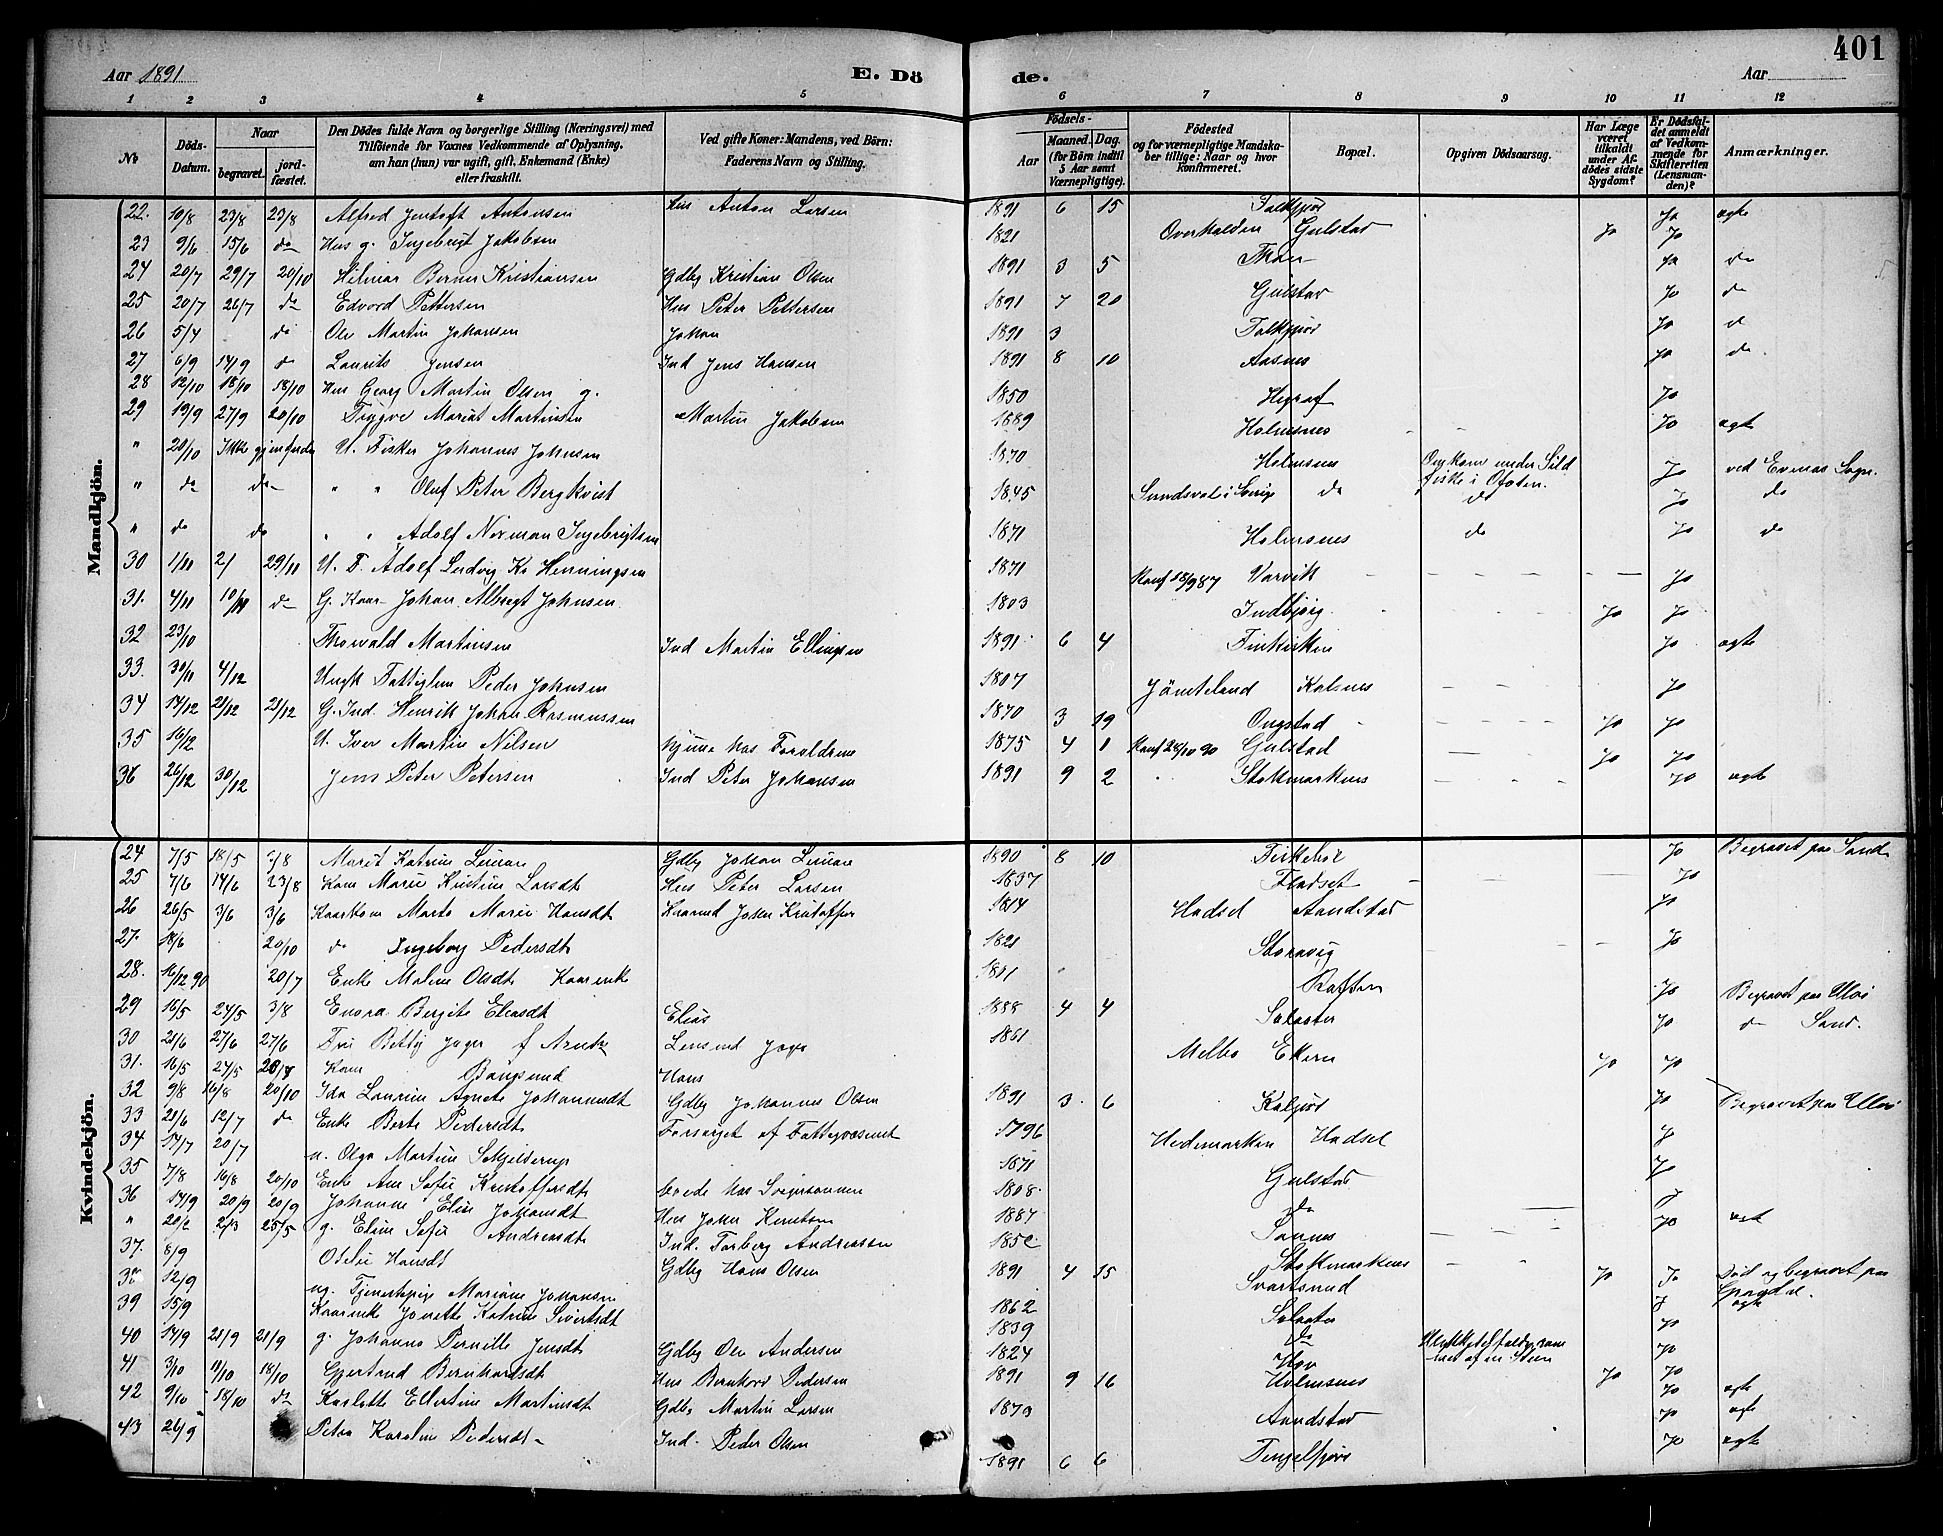 401
Aar 1891 E. Dö de. Aar
1 2 3 4 5 6 7 8 9 10 11 12
No
Döds-Datum.
Naar begravet. jordfæstet.
Den Dödes fulde Navn og borgerlige Stilling (Næringsvei) med Tilföiende for Voxnes Vedkommende af Oplysning, om han (hun) var ugift, gift, Enkemand (Enke) eller fraskilt.
Ved gifte Koner: Mandens, ved Börn: Faderens Navn og Stilling.
Födsels- Aar Maaned. Dag. (for Börn indtil 5 Aar samt Værnepligtige).
Födested og for værnepligtige Mandskaber tillige: Naar og hvor konfirmeret.
Bopæl.
Opgiven Dödsaarsag.
Har Læge været tilkaldt under Afdödes sidste Sygdom?
Er Dödsfaldet anmeldt af Vedkommende for Skifteretten (Lensmanden)?
Anmærkninger.
Mandkjön.
22. 10/8 23/8 23/8 Alfred Jentoft Antonsen Hus Anton Larsen 1891 6 15 Falkfjor Ja ægte
23 9/6 15/6 do Hus g. Ingebrigt Jakobsen 1821 Overhalden Gulstad Jo Jo
24 20/7 29/7 20/10 Hilmar Berner Kristiansen Gdbg Kristian Olsen 1891 3 5 Ja do
25 20/7 26/7 do Edvard Pettersen Hus Peter Pettersen 1891 7 20 Gulstad Jo do
26 5/4 do Ole Martin Johansen Johan 1891 3 Falkfjor Jo d
27 6/9 14/9 do Laurits Jensen Ind Jens Hansen 1891 8 10 Aasnes Jo do
28 12/10 18/10 18/10 Hus Georg Martin Olsen g. 1850 Jo
29 19/9 27/9 20/10 Trygve Marius Martinsen Martin Jakobsen 1889 Holmsnes Jo ægte
" 20/10 Ikke gjenfunden U. Fisker Johannes Johnsen 1870 Holmsnes Omkom under Sildfiske i Ofoten. Jo ved Evenes Sogn.
" do do " " Oluf Peter Bergkvist 1845 Sundsval i Sverige do do Jo do
" do do " " Adolf Norman Ingebrigtsen 1871 Holmsnes do Jo do
30 1/11 2/ 29/11 U. F. Adolf Ludvig Kr Henningsen 1871 Konf 18/9 87 Varvik Jo
31. 4/11 10/11 do G. Kaar Johan Albregt Johnsen 1803 Indbjörg Jo Jo
32 23/10 Thorvald Martinsen Ind Martin Ellingsen 1891 6 4 Finkviken Jo ægte
33. 30/11 4/12 Ungk Fattiglem Peder Johnsen 1807 Jämteland Kalsnes Jo
34 14/12 21/12 21/12 G. Ind. Henrik Johan Rasmussen 1870 3 19 Ongstad Jo Jo
35 16/12 U. Iver Martin Nilsen Hjeme hos Foreldrene 1875 4 1 Konf 28/10 90 Gulstad Jo Jo
36 26/12 30/12 Jens Peter Petersen Ind Peter Johansen 1891 9 2 Stokmarknes Jo ægte
Kvindekjön.
24 7/5 18/5 /8 Maret Katrine Gdbg Johan 1890 8 10 Jo Begravet paa Sand
25 7/6 14/6 23/8 Kone Marie Kristine Larsdt Hus Peter Larsen 1837 Fladset Jo
26 26/5 3/6 3/6 Kaarkone Marta Marie Hansdt Kaarmd Johan Kristoffer 1814 Hadsel Aandstad Jo
27. 18/6 20/10 do Ingeborg Pedersdt 1821 Storavig Jo
28. 16/12 90 20/7 Enke Maline Olsdt Kaarenke Raften Jo Begravet paa Ulvö
29 16/5 24/5 3/8 Enora Bergite Eliasdt Elias 1888 4 4 Jo do Sand.
30 21/6 27/6 27/6 Fru Betty Jager f. Arntz Lensmd Jager 1861 Melbo Ekren
31. 16/5 24/5 Kone Bangsund Hans Jo Jo
32 9/8 16/8 20/10 Ida Laurine Agnete Johannesdt Gdbg Johannes Olsen 1891 3 6 Kalfjor Jo Begravet paa Ulvö
33 21/6 12/7 do Enke Berte Pedersdt Forsørget af Fattigvæsenet 1796 Hedemarken Hadsel J
34 14/7 20/7 u. Olga Martine Schjelderup 1871 Gulstad Jo
35 7/8 16/8 20/10 Enke Ane Sofie Kristoffersdt boede hos Svigersønnen 1808 do J
36 14/9 20/9 20/9 Johanne Eline Johansdt Hus Johan Knutsen 1887 Sannes Jo ægt
" 20/2 2/3 25/5 g. Eline Sofie Andreasdt Ind. Torberg Andreassen Stokmarknes
37. 8/9 Otelie Hansdt Gdbg Hans Olsen 1891 4 15 Svartsund Jo Ja Död og begravet paa
38 12/9 ug. Tjenestepige Mariane Johansen 1862 J ægte
39 15/9 Kaarenke Jonette Katrine Sivertsdt 1839 do Jo
40 14/9 21/9 21/9 g. Johanna Pernille Jensdt Gdbg Ole Andersen 1824 Hov af en Steen Jo
41 3/10 11/10 18/10 Gjertrud Bernhardsdt Hus Bernhard Pedersen 1891 9 16 Holmsnes Jo Jo ægte
42 9/10 18/10 do Karlotte Ellertine Martinsdt Gdbg Martin Larsen 1873 Aandstad Jo ægt
43 26/9 Petra Karoline Pedersdt Ind. Peder Olsen 1891 6 6 Tengelfjord Jo ægt